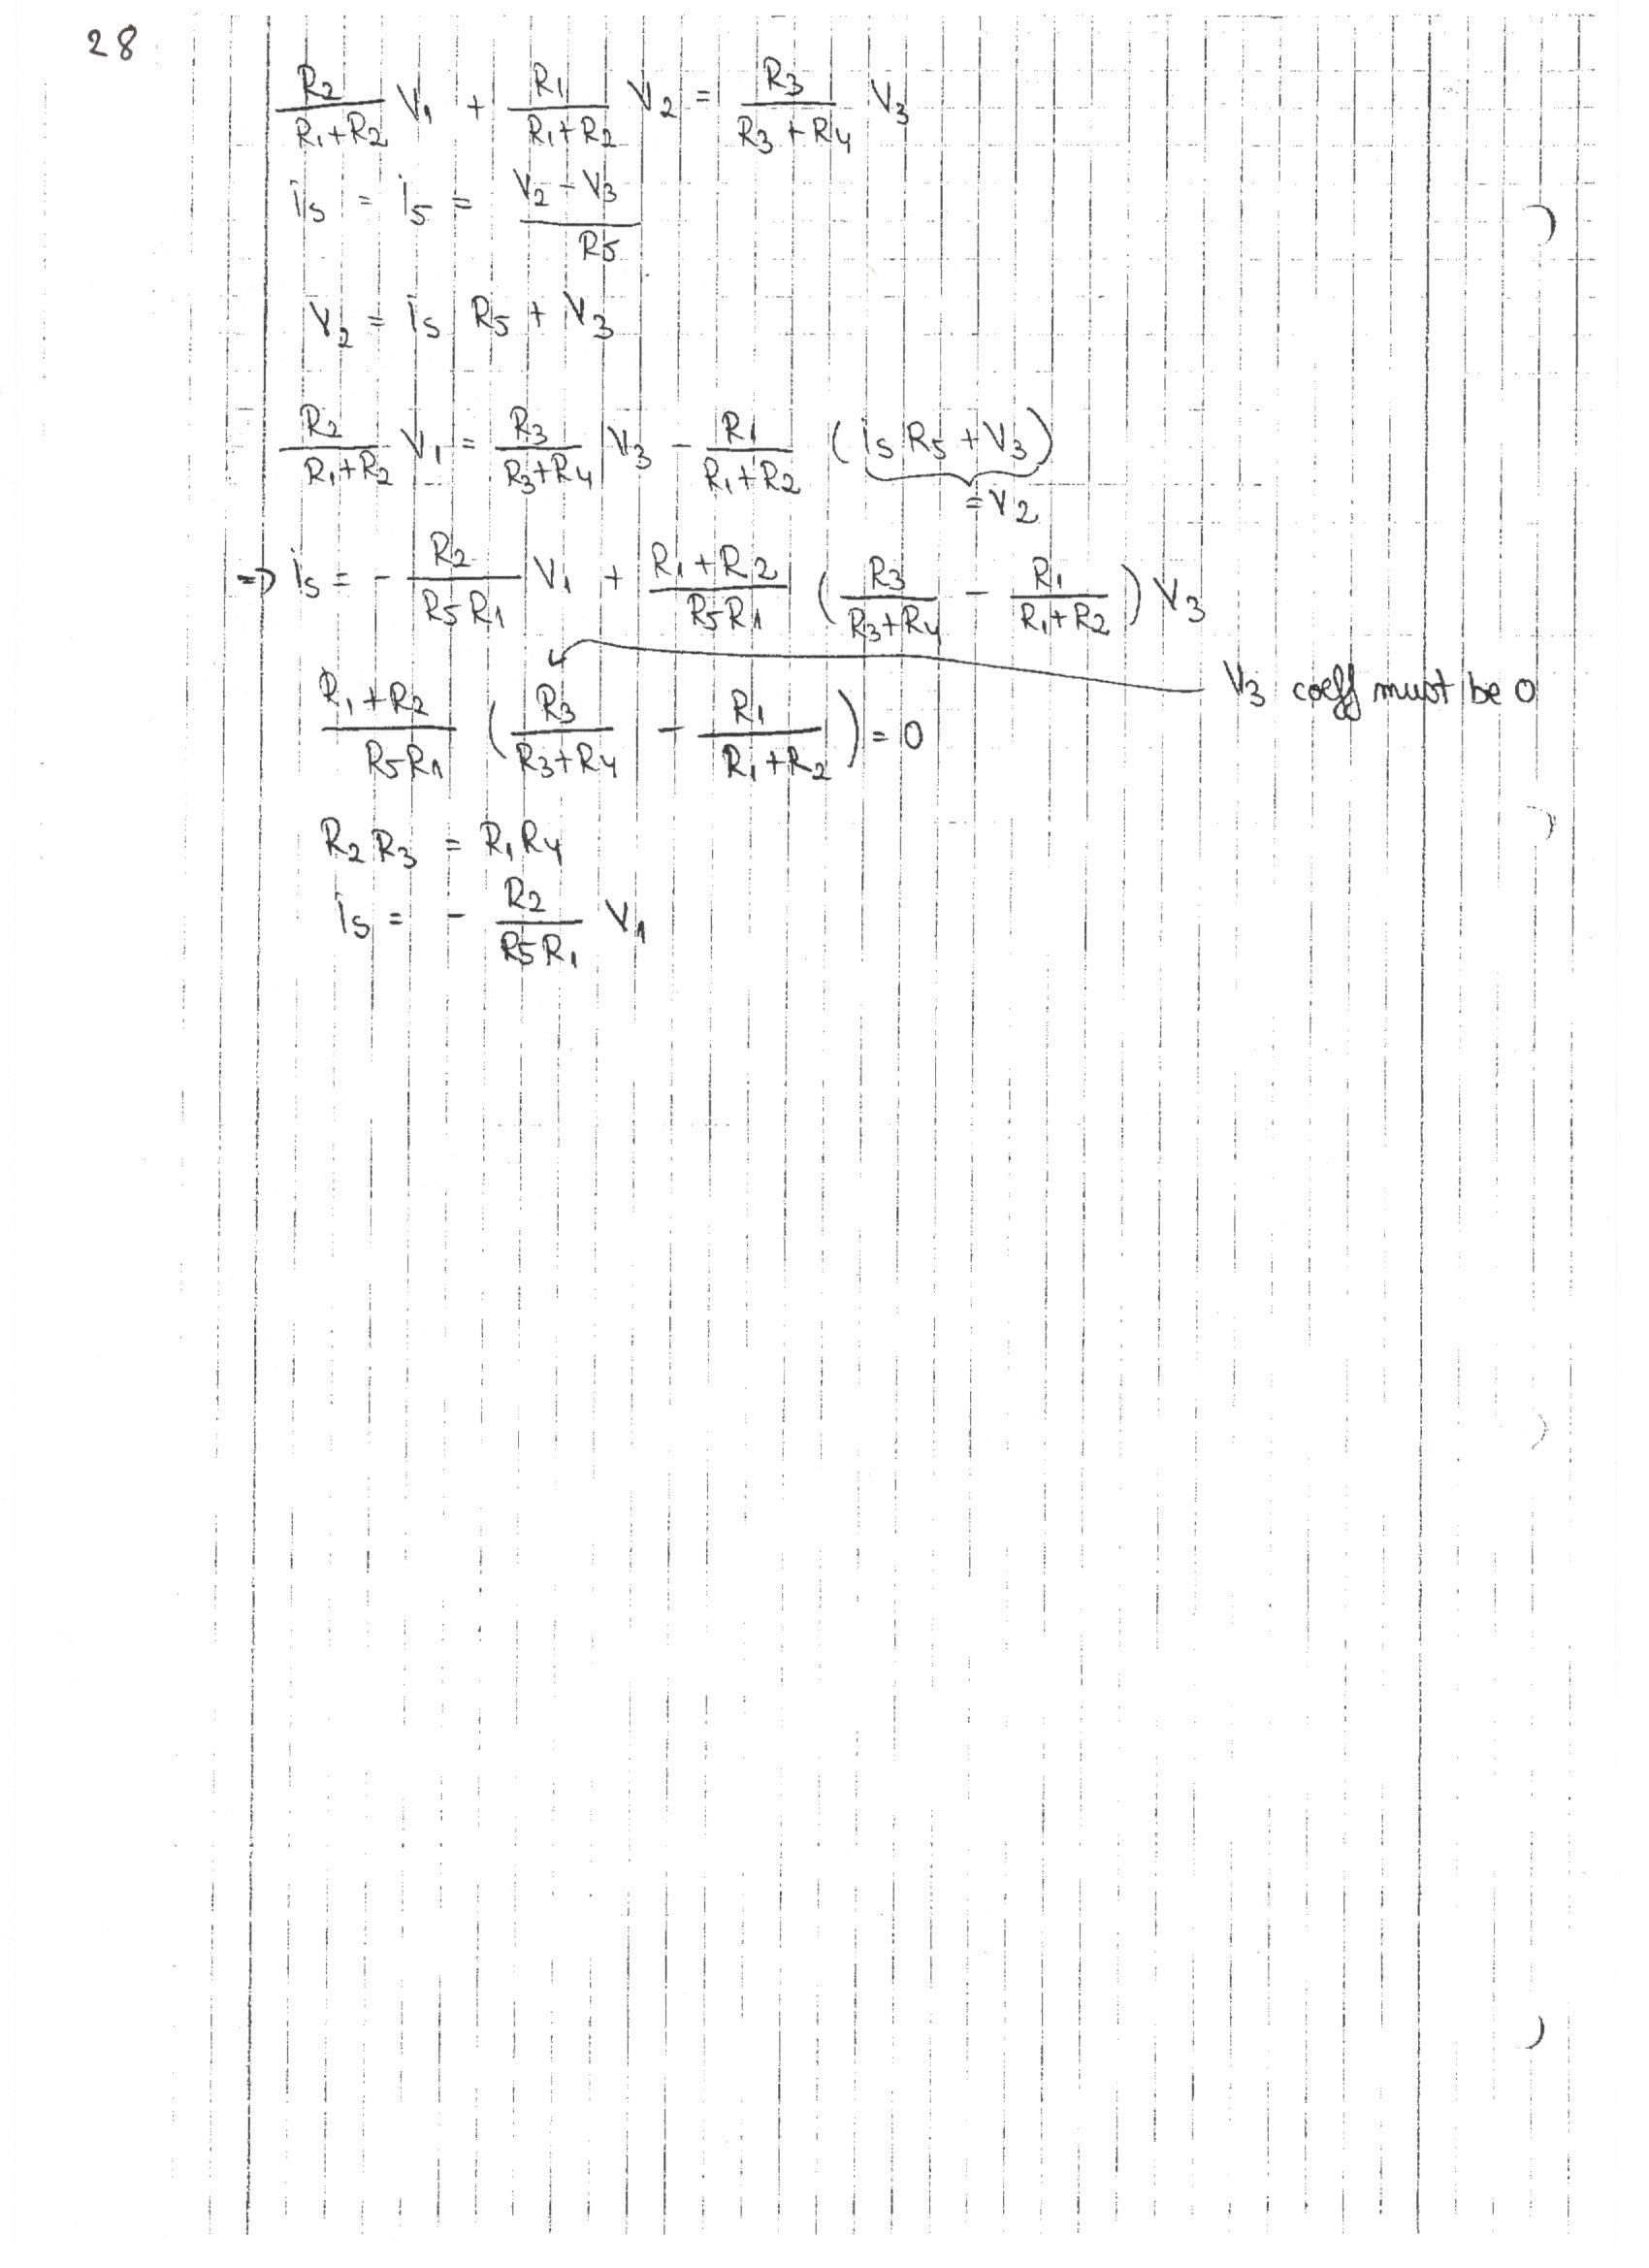 28
R₂/(R₁+R₂) V₁ + R₁/(R₁+R₂) V₂ = R₃/(R₃+R₄) V₃
iₛ = i₅ = (V₂ - V₃)/R₅
V₂ = iₛ R₅ + V₃
R₂/(R₁+R₂) V₁ = R₃/(R₃+R₄) V₃ - R₁/(R₁+R₂) (iₛ R₅ + V₃)
= V₂
=> iₛ = - R₂/(R₅R₁) V₁ + (R₁+R₂)/(R₅R₁) (R₃/(R₃+R₄) - R₁/(R₁+R₂)) V₃
V₃ coeff must be 0
(R₁+R₂)/(R₅R₁) (R₃/(R₃+R₄) - R₁/(R₁+R₂)) = 0
R₂R₃ = R₁R₄
iₛ = - R₂/(R₅R₁) V₁